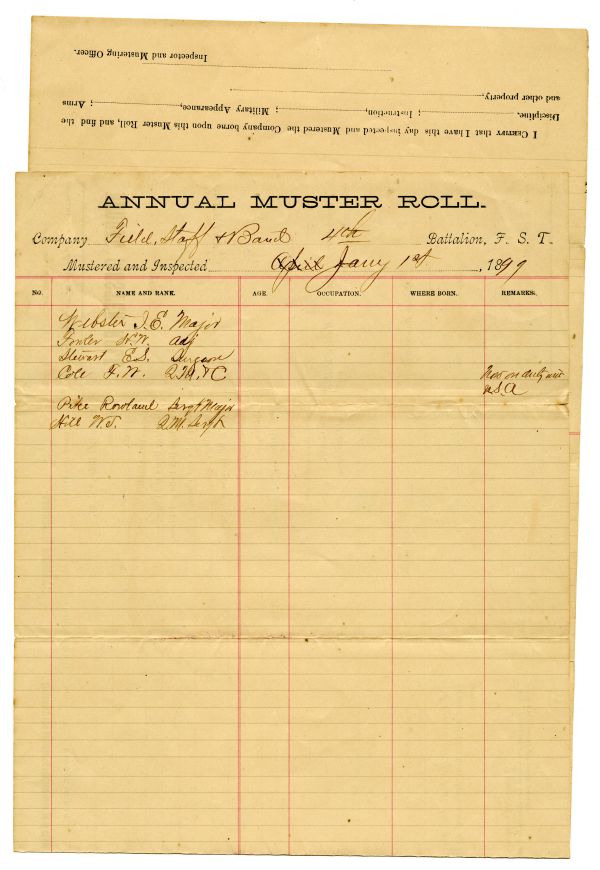 Inspector and Mustering Officer.
and other property,
Discipline, ; Instruction, ; Military Appearance, ; Arms
I CERTIFY that I have this day inspected and Mustered the Company borne upon this Muster Roll, and find the
ANNUAL MUSTER ROLL.
Company Field, Staff & Band 4th Battalion, F. S. T.
Mustered and Inspected April Jany 1st, 1899
No. NAME AND RANK. AGE. OCCUPATION. WHERE BORN. REMARKS.
Webster J. E. Major
Fowler W. W. adj
Stewart E. S. Surgeon
Cole F. W. Q.M. & C Now on duty with
U.S.A
Pike Rowland Sergt Major
Hill W. J. Q.M. Sergt